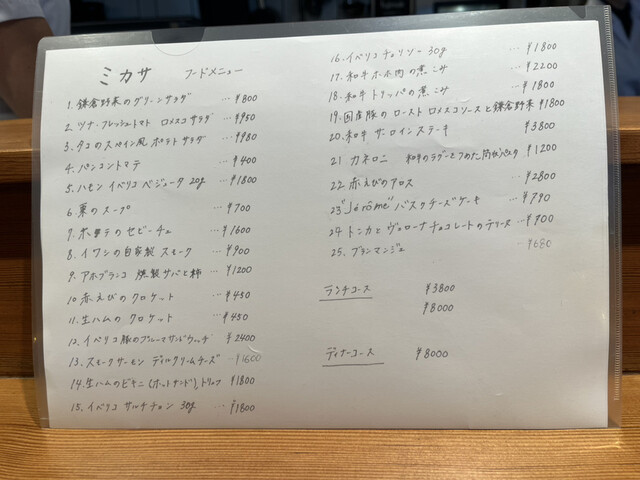 ミカサ フードメニュー
1. 鎌倉野菜のグリーンサラダ ¥800
2. ツナ・フレッシュトマト ロメスコサラダ …¥950
3. タコのスペイン風ポテトサラダ …¥980
4. パンコントマテ …¥400
5. ハモン イベリコ ベジョータ 20g …¥1800
6. 栗のスープ …¥700
7. のセビーチェ …¥1600
8. イワシの自家製 スモーク …¥900
9. アホブランコ 燻製サバと柿 …¥1200
10. 赤えびのクロケット …¥450
11. 生ハムの クロケット …¥450
12. イベリコ豚のプルーマサンドウィッチ ¥2400
13. スモークサーモン ディルクリームチーズ …¥1600
14. 生ハムのビキニ(ホットサンド),トリュフ ¥1800
15. イベリコ サルチチョン 30g …¥1800
16. イベリコチョリソー 30g …¥1800
17. 和牛ホホ肉の煮こみ …¥2200
18. 和牛トリッパの煮こみ …¥1800
19. 国産豚の ロースト ロメスコソースと鎌倉野菜 ¥1800
20. 和牛 サーロインステーキ ¥3800
21. カネロニ 和牛のラグーをつめた筒状パスタ ¥1200
22. 赤えびのアロス …¥2800
23. "Jérôme" バスクチーズケーキ …¥790
24. トンカとヴァローナチョコレートのテリーヌ …¥900
25. ブランマンジェ …¥680
ランチコース ¥3800
¥8000
ディナーコース ¥8000